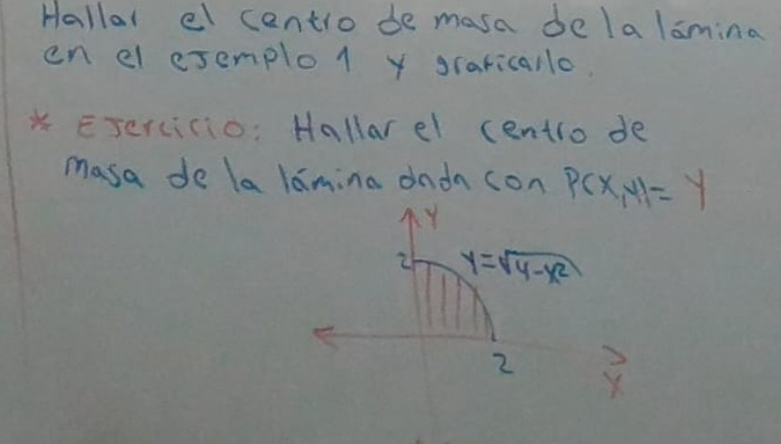 Hallar el centro de masa de la lámina
en el ejemplo 1 y graficarlo.
* Ejercicio: Hallar el centro de
masa de la lámina dada con P(x,y)= y
Y
2 y=√4-x²
2
X